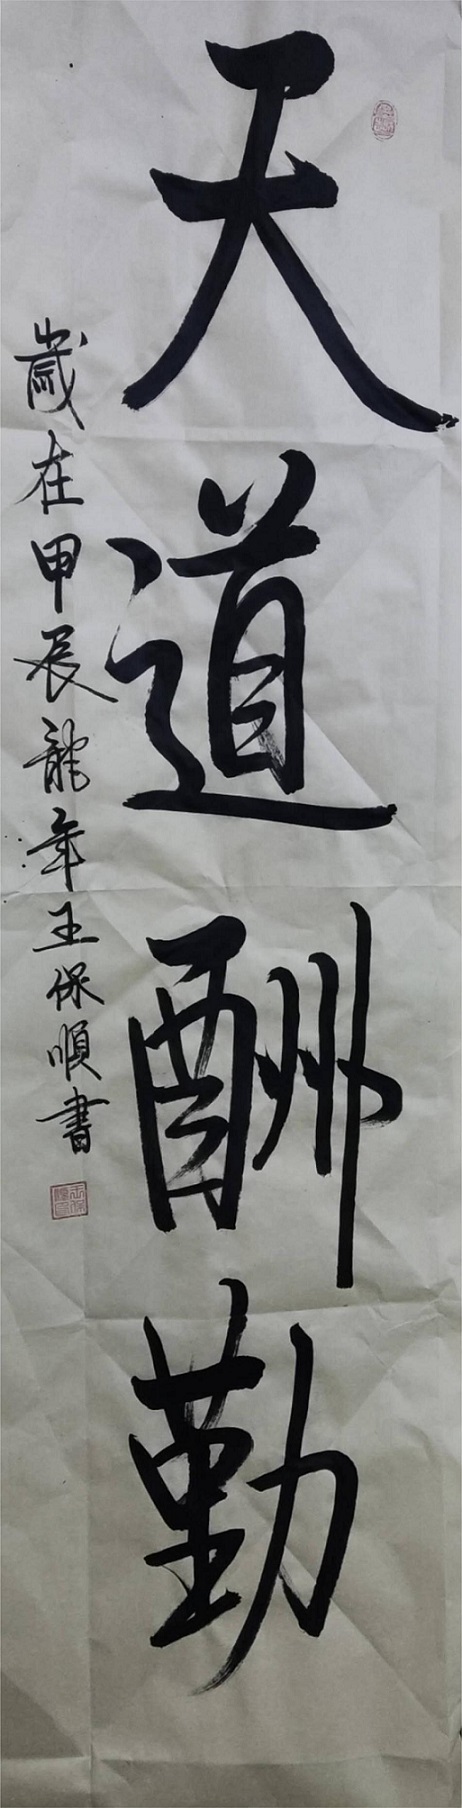 天道酬勤
歲在甲辰龍年王保順書